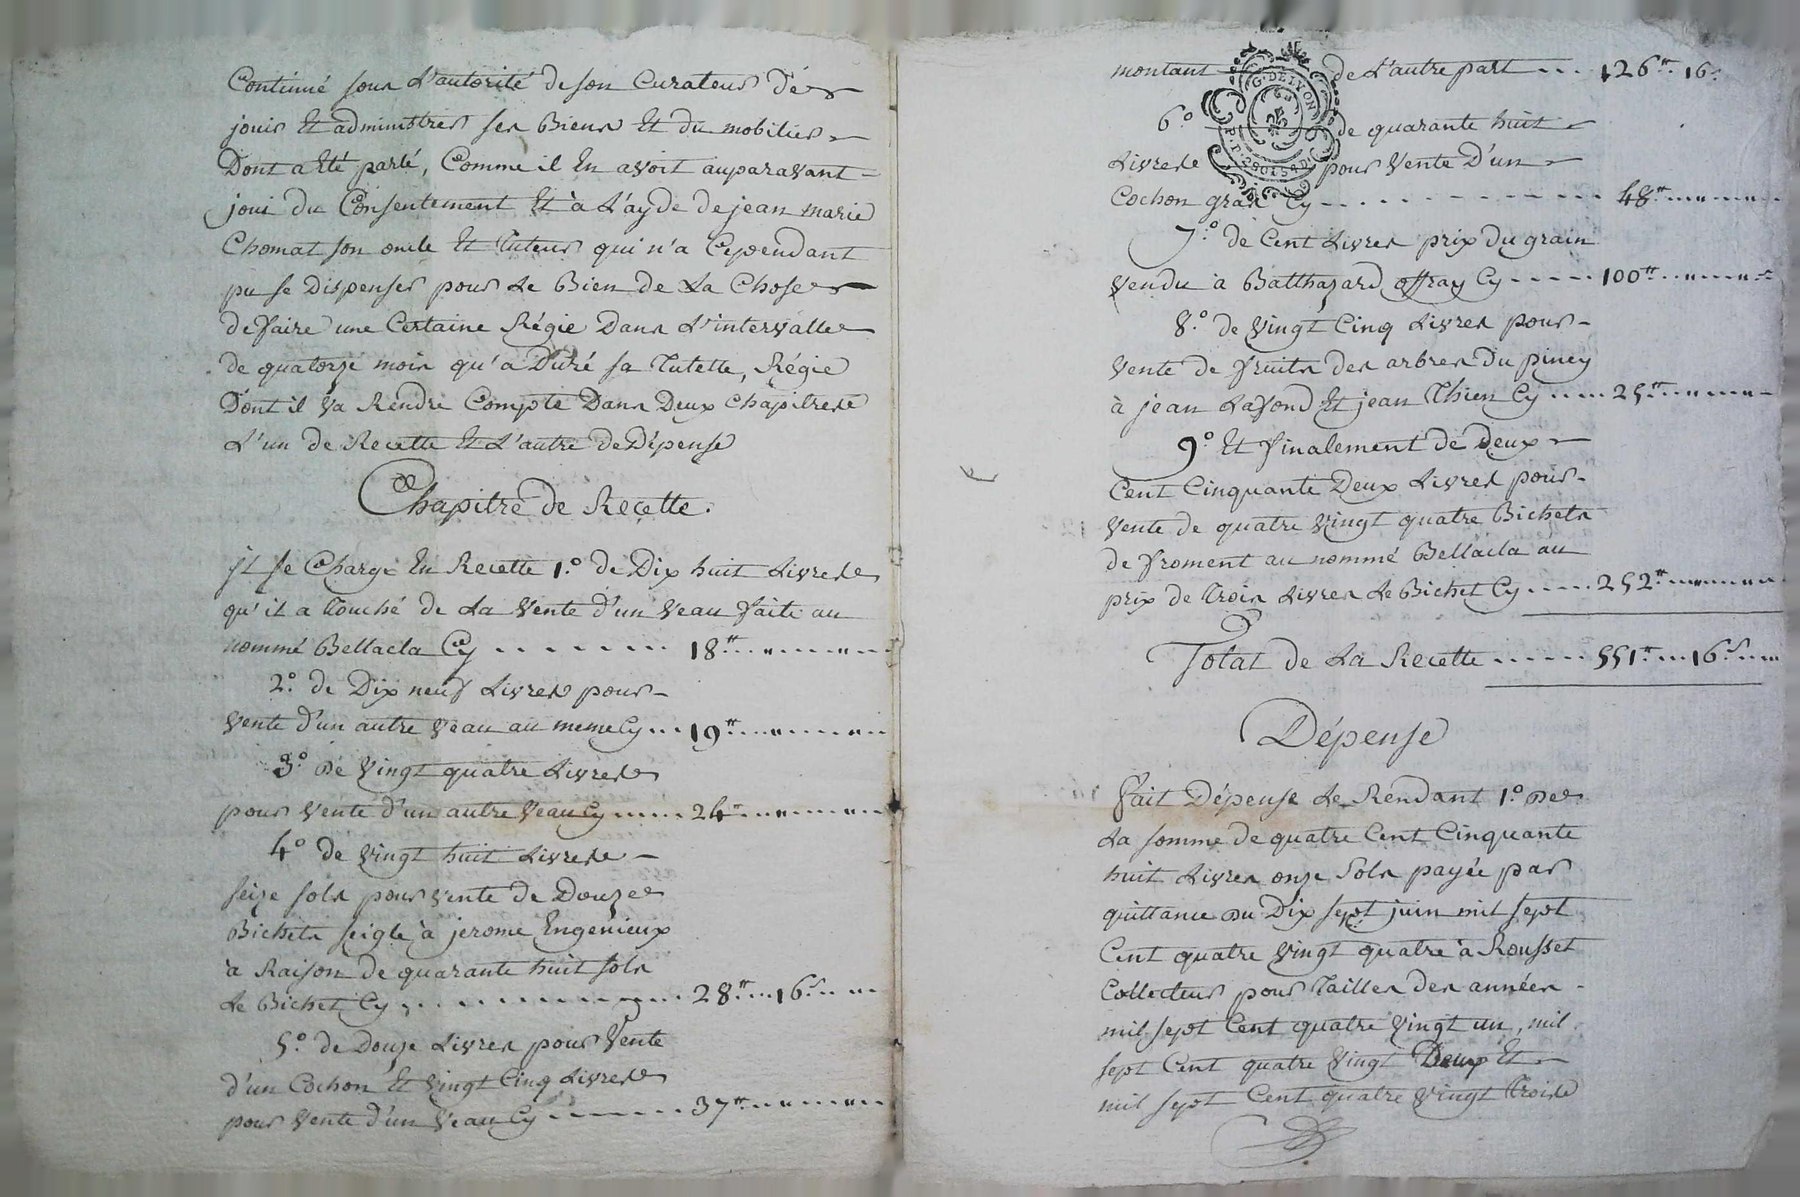 Continué sous L'autorité de son Curateur de
jouir Et administrer ses Biens Et du mobilier
Dont a Eté parlé, Comme il En avoit auparavant
joui du Consentement Et à L'ayde de jean marie
Chomat son oncle Et Tuteur qui n'a Cependant
pu se Dispenser pour Le Bien de La Chose
de faire une Certaine Régie Dans L'intervalle
de quatorze mois qu'a Duré sa Tutelle, Régie
Dont il va Rendre Compte Dans Deux Chapitres
L'un de Recette Et L'autre de Dépense
Chapitre de Recette.
jl se Charge En Recette 1.° de Dix huit Livres
qu'il a Touché de La Vente d'un Veau faite au
nommé Bellacla Cy 18 ₶
2.° de Dix neuf Livres pour
Vente d'un autre Veau au meme Cy 19 ₶
3.° de Vingt quatre Livres
pour Vente d'un autre Veau Cy 24 ₶
4.° de Vingt huit Livres
seize sols pour Vente de Douze
Bichets seigle à jerome Engénieux
à Raison de quarante huit sols
Le Bichet Cy 28 ₶ 16 s
5.° de Douze Livres pour Vente
d'un Cochon Et Vingt Cinq Livres
pour Vente d'un Veau Cy 37 ₶
montant de L'autre part 126 ₶ 16 s
G. DE LYON
6.° de quarante huit
Livres pour Vente D'un
Cochon gras Cy 48 ₶
7.° de Cent Livres prix du grain
Vendu à Balthazard offray Cy 100 ₶
8.° de Vingt Cinq Livres pour
Vente de fruits des arbres du piney
à jean Lafond Et jean Thien Cy 25 ₶
9.° Et finalement de Deux
Cent Cinquante Deux Livres pour
Vente de quatre Vingt quatre Bichets
de froment au nommé Bellacla au
prix de Trois Livres Le Bichet Cy 252 ₶
Total de La Recette 551 ₶ 16 s
Dépense
Fait Dépense Le Rendant 1.° de
La somme de quatre Cent Cinquante
huit Livres onze Sols payée par
quittance du Dix sept juin mil sept
Cent quatre Vingt quatre à Rousset
Collecteur pour Tailles des années
mil sept Cent quatre Vingt un, mil
sept Cent quatre Vingt Deux Et
mil sept Cent quatre Vingt Trois